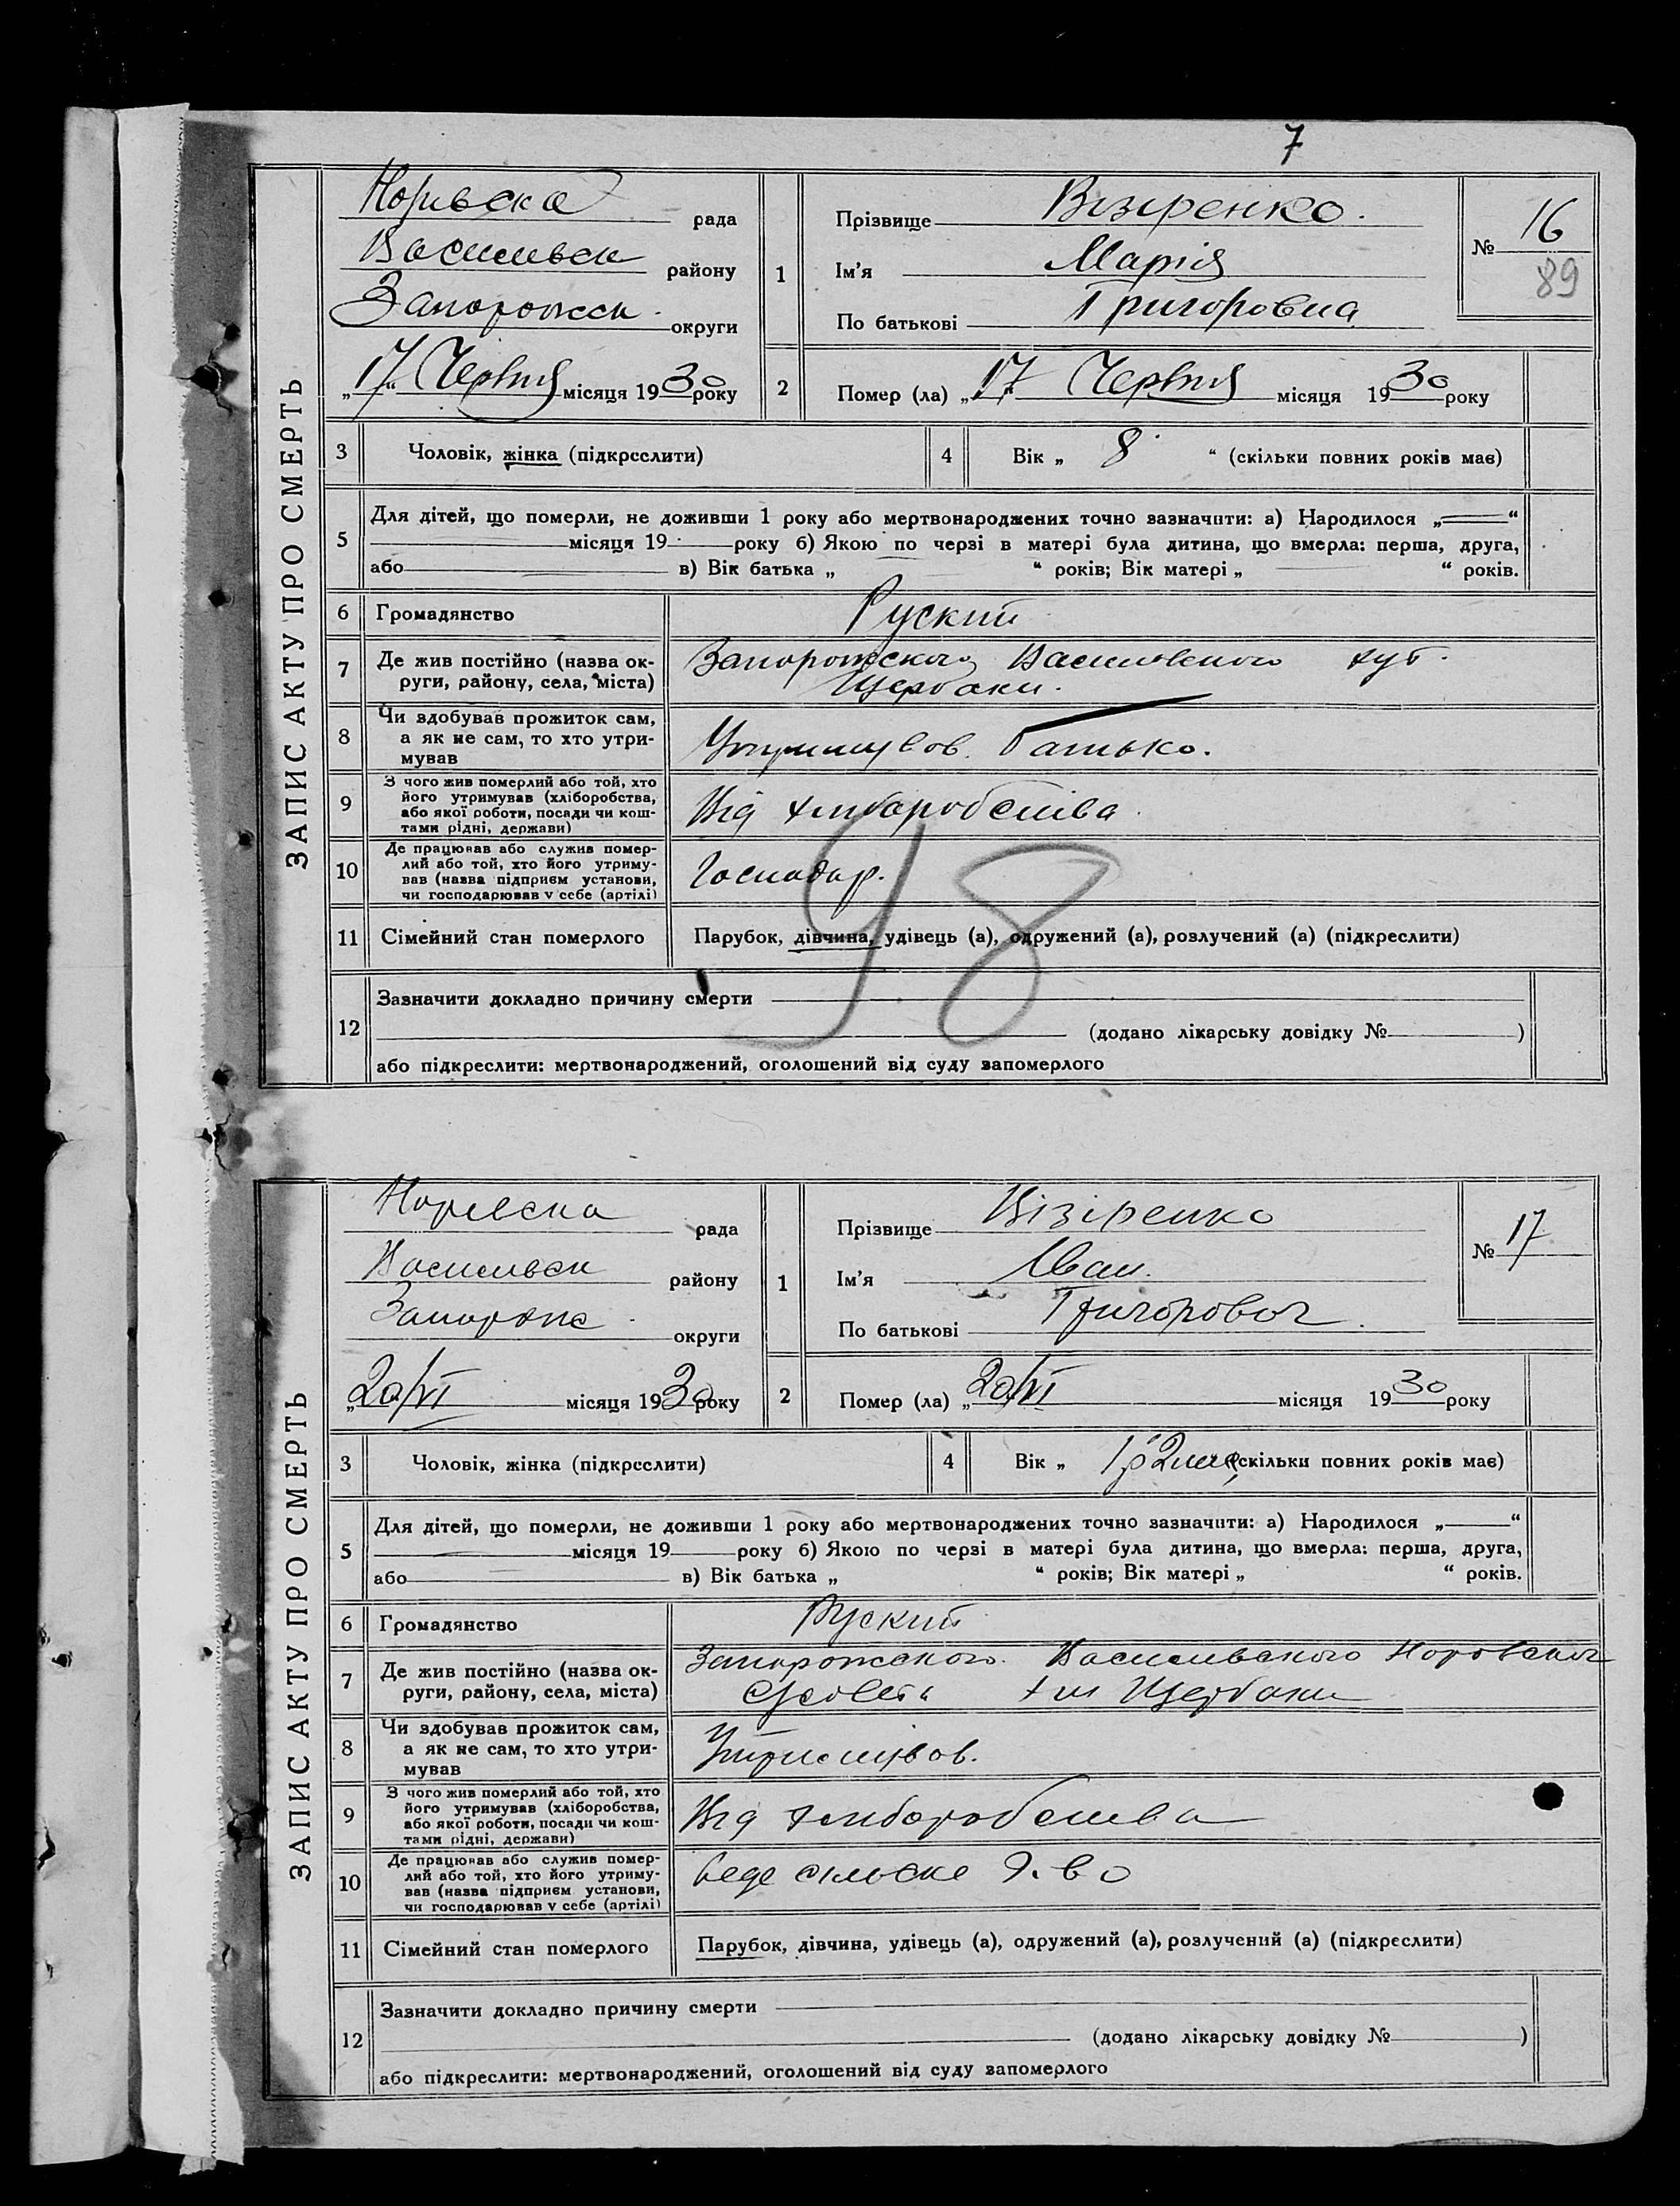 7
ЗАПИС АКТУ ПРО СМЕРТЬ
Норивска рада
Васильвск району
Запорожск округи
„17“ Червня місяця 1930 року
1
Прізвище Візіренко.
Ім’я Марія
По батькові Григоровна
№ 16
89
2
Помер (ла) „17“ Червня місяця 1930 року
3 Чоловік, жінка (підкреслити)
4 Вік „ 8 “ (скільки повних років має)
5 Для дітей, що померли, не доживши 1 року або мертвонароджених точно зазначити: а) Народилося „ “
місяця 19 року б) Якою по черзі в матері була дитина, що вмерла: перша, друга,
або в) Вік батька „ “ років; Вік матері „ “ років.
6 Громадянство Руский
7 Де жив постійно (назва ок-
руги, району, села, міста)
Запорожского Василевского хут.
Щербаки.
8 Чи здобував прожиток сам,
а як не сам, то хто утри-
мував
Утримував Батько.
9 З чого жив померлий або той, хто
його утримував (хліборобства,
або якої роботи, посади чи кош-
тами рідні, держави)
Від хлибаробства
10 Де працював або служив помер-
лий або той, хто його утриму-
вав (назва підприєм установи,
чи господарював у себе (артілі)
Господар.
98
11 Сімейний стан померлого Парубок, дівчина, удівець (а), одружений (а), розлучений (а) (підкреслити)
12 Зазначити докладно причину смерти
(додано лікарську довідку № )
або підкреслити: мертвонароджений, оголошений від суду запомерлого
ЗАПИС АКТУ ПРО СМЕРТЬ
Норевска рада
Васильвск району
Запорож округи
„20/VI місяця 1930 року
1
Прізвище Візіренко
Ім’я Иван.
По батькові Григорович
№ 17
2
Помер (ла) „20/VI місяця 1930 року
3 Чоловік, жінка (підкреслити)
4 Вік „ 1р 2мес (скільки повних років має)
5 Для дітей, що померли, не доживши 1 року або мертвонароджених точно зазначити: а) Народилося „ “
місяця 19 року б) Якою по черзі в матері була дитина, що вмерла: перша, друга,
або в) Вік батька „ “ років; Вік матері „ “ років.
6 Громадянство Руский
7 Де жив постійно (назва ок-
руги, району, села, міста)
Запорожского Василивского
Щербаки
8 Чи здобував прожиток сам,
а як не сам, то хто утри-
мував
Утримував.
9 З чого жив померлий або той, хто
його утримував (хліборобства,
або якої роботи, посади чи кош-
тами рідні, держави)
Від хлиборобства
10 Де працював або служив помер-
лий або той, хто його утриму-
вав (назва підприєм установи,
чи господарював у себе (артілі)
веде сільске
11 Сімейний стан померлого Парубок, дівчина, удівець (а), одружений (а), розлучений (а) (підкреслити)
12 Зазначити докладно причину смерти
(додано лікарську довідку № )
або підкреслити: мертвонароджений, оголошений від суду запомерлого